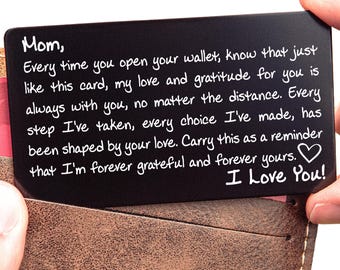 Mom,
Every time you open your wallet, know that just
like this card, my love and gratitude for you is
always with you, no matter the distance. Every
step I've taken, every choice I've made, has
been shaped by your love. Carry this as a reminder
that I'm forever grateful and forever yours.
I Love You!